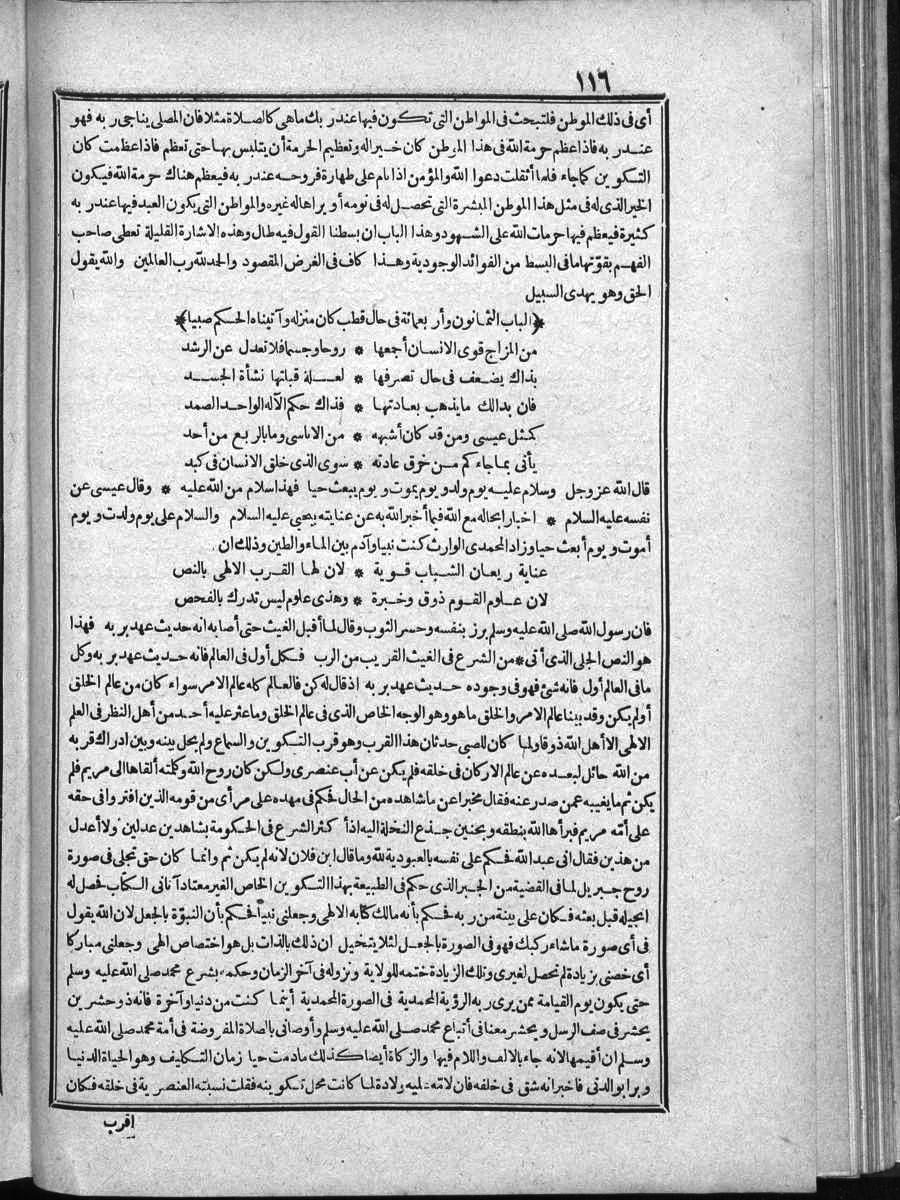 ١١٦
أى فى ذلك الموطن فلتبحث فى المواطن التى تكون فيها عند ربك ما هى كالصلاة مثلا فان المصلى يناجى ربه فهو
عند ربه فاذا عظم حرمة الله فى هذا الموطن كان خيرا له وتعظيم الحرمة أن يتلبس بها حتى تعظم فاذا عظمت كان
التكوين كما جاء فلما أثقلت دعوا الله والمؤمن اذا نام على طهارة فروحه عند ربه فيعظم هناك حرمة الله فيكون
الخير الذى له فى مثل هذا الموطن المبشرة التى تحصل له فى نومه أو يراها له غيره والمواطن التى يكون العبد فيها عند ربه
كثيرة فيعظم فيها حرمات الله على الشهود وهذا الباب ان بسطنا القول فيه طال وهذه الاشارة القليلة تعطى صاحب
الفهم بقوّتها ما فى البسط من الفوائد الوجودية وهذا كاف فى الغرض المقصود والحمد لله رب العالمين والله يقول
الحق وهو يهدى السبيل
﴿الباب الثمانون وأربعمائة فى حال قطب كان منزله وآتيناه الحكم صبيا﴾
من المزاج قوى الانسان أجمعها * روحا وجسما فلا تعدل عن الرشد
بذاك يضعف فى حال تصرفها * لعلة قباتها نشأة الجسد
فان بدالك ما يذهب بعادتها * فذاك حكم الآله الواحد الصمد
كمثل عيسى ومن قد كان أشبهه * من الاناسى وما بالربع من أحد
يأتى بما جاءكم من خرق عادته * سوى الذى خلق الانسان فى كبد
قال الله عز وجل وسلام عليه يوم ولد ويوم يموت ويوم يبعث حيا فهذا سلام من الله عليه * وقال عيسى عن
نفسه عليه السلام * اخبارا بحاله مع الله فيما أخبر الله به عن عنايته بيحيى عليه السلام والسلام على يوم ولدت ويوم
أموت ويوم أبعث حيا وزاد المحمدى الوارث كنت نبيا وآدم بين الماء والطين وذلك ان
عناية ريعان الشباب قوية * لان لها القرب الالهى بالنص
لان علوم القوم ذوق وخبرة * وهذى علوم ليس تدرك بالفحص
فان رسول الله صلى الله عليه وسلم برز بنفسه وحسر الثوب وقال لما أقبل الغيث حتى أصابه انه حديث عهد بربه فهذا
هو النص الجلى الذى أتى * من الشرع فى الغيث القريب من الرب فكل أول فى العالم فانه حديث عهد بربه وكل
ما فى العالم أول فانه شئ فهو فى وجوده حديث عهد بربه اذ قال له كن فالعالم كله عالم الامر سواء كان من عالم الخلق
أو لم يكن وقد بينا عالم الامر والخلق ما هو وهو الوجه الخاص الذى فى عالم الخلق وما عثر عليه أحد من أهل النظر فى العلم
الالهى الا أهل الله ذوقا ولما كان للصبى حدثان هذا القرب وهو قرب التكوين والسماع ولم يحل بينه وبين ادراك قربه
من الله حائل لبعده عن عالم الاركان فى خلقه فلم يكن عن أب عنصرى ولكن كان روح الله وكلمته ألقاها الى مريم فلم
يكن ثم ما يغيبه عمن صدر عنه فقال مخبرا عن ما شاهده من الحال فحكم فى مهده على مرأى من قومه الذين افتروا فى حقه
على أمّه مريم فبرأها الله بنطقه وبحنين جذع النخلة اليه اذ أكثر الشرع فى الحكومة بشاهدين عدلين ولا أعدل
من هذين فقال انى عبد الله فحكم على نفسه بالعبودية لله وما قال ابن فلان لانه لم يكن ثم وانما كان حق تجلى فى صورة
روح جبريل لما فى القضية من الجبر الذى حكم فى الطبيعة بهذا التكوين الخاص الغير معتاد آتانى الكتاب فحصل له
انجيله قبل بعثه فكان على بينة من ربه فحكم بأنه مالك كتابه الالهى وجعلنى نبيا فحكم بأن النبوّة بالجعل لان الله يقول
فى أى صورة ما شاء ركبك فهو فى الصورة بالجعل لئلا يتخيل ان ذلك بالذات بل هو اختصاص الهى وجعلنى مباركا
أى خصنى بزيادة لم تحصل لغيرى وتلك الزيادة ختمه للولاية ونزوله فى آخر الزمان وحكمه بشرع محمد صلى الله عليه وسلم
حتى يكون يوم القيامة ممن يرى ربه الرؤية المحمدية فى الصورة المحمدية أينما كنت من دنيا وآخرة فانه ذو حشرين
يحشر فى صف الرسل ويحشر معنا فى أتباع محمد صلى الله عليه وسلم وأوصانى بالصلاة المفروضة فى أمة محمد صلى الله عليه
وسلم ان أقيمها لانه جاء بالالف واللام فيها والزكاة أيضا كذلك ما دمت حيا زمان التكليف وهو الحياة الدنيا
وبرا بوالدتى فاخبر انه شق فى خلقه فان لامّه عليه ولادة لما كانت محل تكوينه فقلت نسبته العنصرية فى خلقه فكان
اقرب